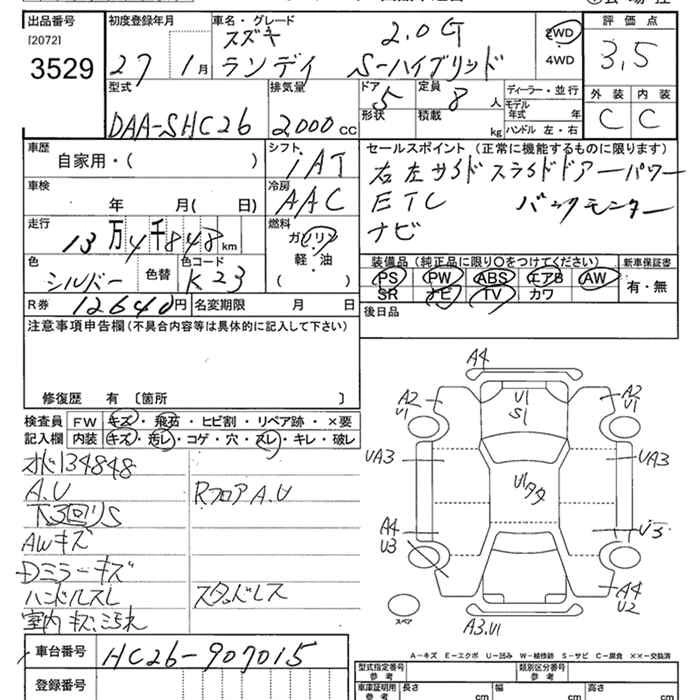 出品番号 初度登録年月 車名・グレード 評価点
[2072] スズキ 2.0G 2WD 3.5
3529 27 1月 ランディ S-ハイブリッド 4WD
型式 排気量 ドア 5 定員 8人 ディーラー・並行 外装 内装
DAA-SHC26 2000CC 形状 積載 kg モデル年式 年 C C
ハンドル 左・右
車歴 シフト セールスポイント (正常に機能するものに限ります)
自家用・( ) IAT 右左サイドスライドドアーパワー
車検 冷房 ETC バックモニター
年 月( 日) AAC ナビ
走行 燃料
13万4千848km ガソリン
軽・油
( )
装備品(純正品に限り○をつけてください) 新車保証書
色 シルバー 色替 色コード K23 PS PW ABS エアB AW 有・無
SR ナビ TV カワ
R券 12640円 名変期限 月 日 後日品
注意事項申告欄(不具合内容等は具体的に記入して下さい)
修復歴 有 〔箇所 〕
検査員 FW キズ・飛石・ヒビ割・リペア跡・×要
記入欄 内装 キズ・汚レ・コゲ・穴・スレ・キレ・破レ
134848
A.U RフロアA.U
下3回りS
AWキズ
Dミラーキズ
ハンドルスレ スタッドレス
室内キズ汚れ
車台番号 HC26-907015
登録番号
A4
A2 U1 U1 S1 A2 U1
UA3 UA3
A4 U3 U3
A4 U2
スペア A3.U1
A-キズ E-エクボ U-凹み W-補修跡 S-サビ C-腐食 ××-交換済
型式指定番号 参考 類別区分番号 参考
車庫証明用 参考 長さ cm 幅 cm 高さ cm